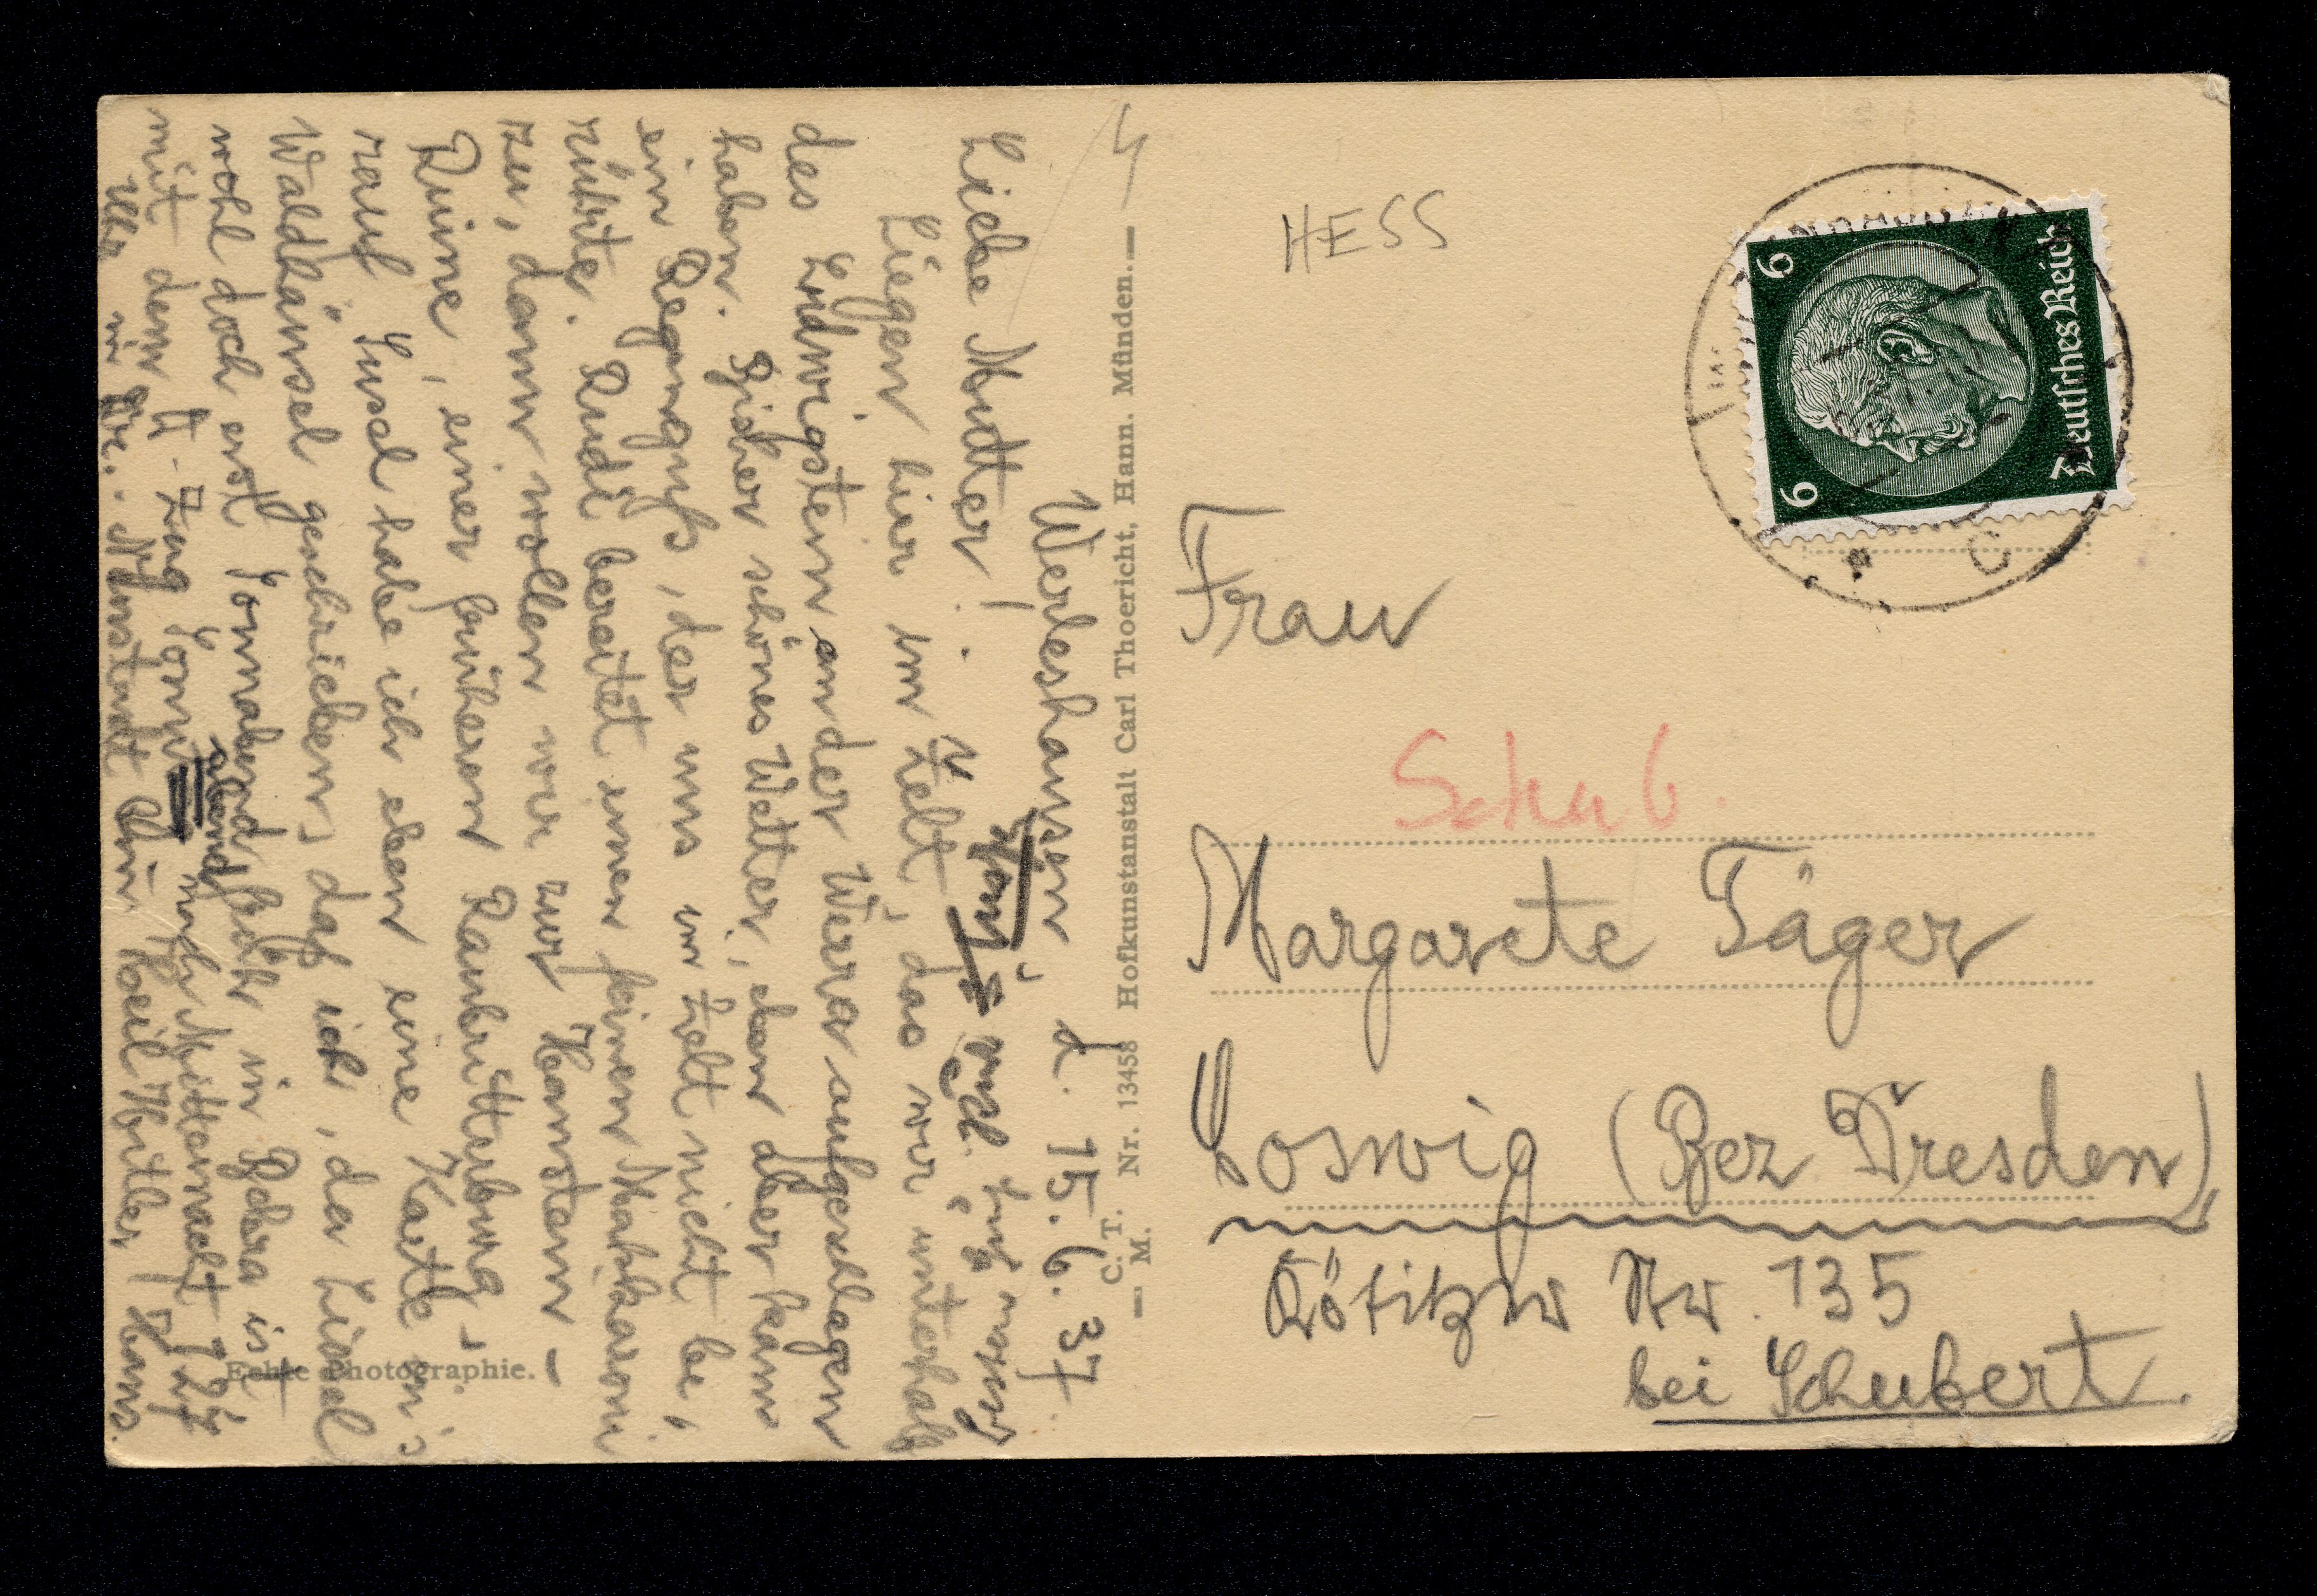 Werleshausen, d. 15.6.37
Liebe Mudter!
Liegen hier im Zelt, das wir unterhalb
des Ludwigstein an der Werra aufgeschlagen
haben. Bisher schönes Wetter, eben aber kam
ein Regenguß, der uns im Zelt nicht be-
rührte. Rudi bereitet einen feinen Makkaroni
zu, dann wollen wir zur Hanstein-
Ruine, einer früheren Raubritterburg,
rauf. Susel habe ich eben eine Karte
Waldhäusel geschrieben, daß ich, da Liesel
wohl doch erst Sonnabend früh in Bebra ist
mit dem Zug
abend
nach Mitternacht
Uhr in Dr.-Neustadt bin. Heil Hitler, Hans.
C. T. M. Nr. 13458 Hofkunstanstalt Carl Thoericht, Hann. Münden.
Echte Photographie.
HESS
6 6
Deutsches Reich
Frau
Schub.
Margarete Jäger
Coswig (Bez Dresden)
Kötitzer Str. 135
bei Schubert.